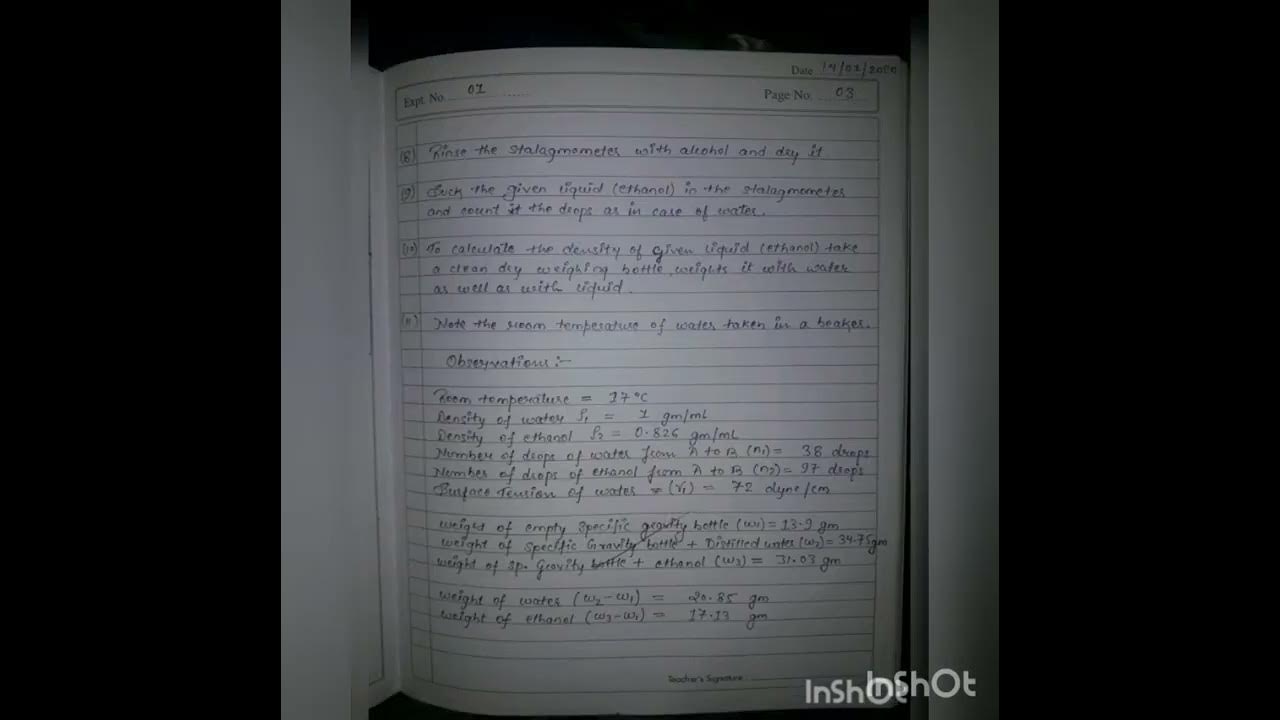 Date 14/01/2020
Expt. No. 01
Page No. 03
(8) Rinse the stalagmometer with alcohol and dry it
(9) Suck the given liquid (ethanol) in the stalagmometer
and count it the drops as in case of water.
(10) To calculate the density of given liquid (ethanol) take
a clean dry weighing bottle, weights it with water
as well as with liquid.
(11) Note the room temperature of water taken in a beaker.
Observations :-
Room temperature = 17°C
Density of water ρ₁ = 1 gm/mL
Density of ethanol ρ₂ = 0.826 gm/mL
Number of drops of water from A to B (n₁) = 38 drops
Number of drops of ethanol from A to B (n₂) = 97 drops
Surface Tension of water = (γ₁) = 72 dyne/cm
weight of empty specific gravity bottle (w₁) = 13.9 gm
weight of specific Gravity bottle + Distilled water (w₂) = 34.75gm
weight of sp. Gravity bottle + ethanol (w₃) = 31.03 gm
weight of water (w₂-w₁) = 20.85 gm
weight of ethanol (w₃-w₁) = 17.13 gm
Teacher's Signature
InShOt InShOt